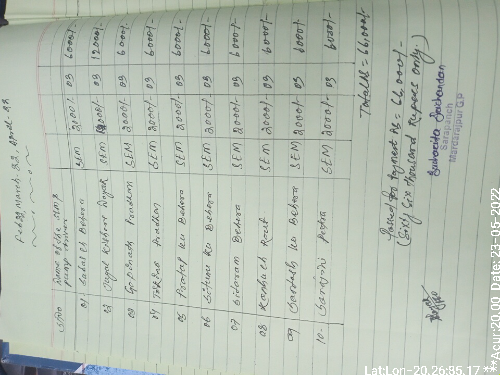 Feb 22, March, 22, April - 22
Name of the SEM &
pump driver
01 Sadasib Behera SEM 2000/- 03 6000/-
02 Jugal Kishore Nayak SEM 2000/- 03 12000/-
03 Gopinath Pradhan SEM 2000/- 03 6000/-
04 Pradhan SEM 2000/- 03 6000/-
05 Pratap Ku Behera SEM 2000/- 03 6000/-
06 Ku Behera SEM 2000/- 03 6000/-
07 Behera SEM 2000/- 03 6000/-
08 Rout SEM 2000/- 03 6000/-
09 Santosh Ku Behera SEM 2000/- 03 6000/-
10. Sarojini SEM 2000/- 03 6000/-
Total Rs = 66,000/-
Passed for payment Rs = 66,000/-
(Sixty six thousand Rupees only)
Sarpanch
Mardarajpur G.P
Lat:Lon-20.26:85.17
***Acur:20.00 Date:23-05-2022